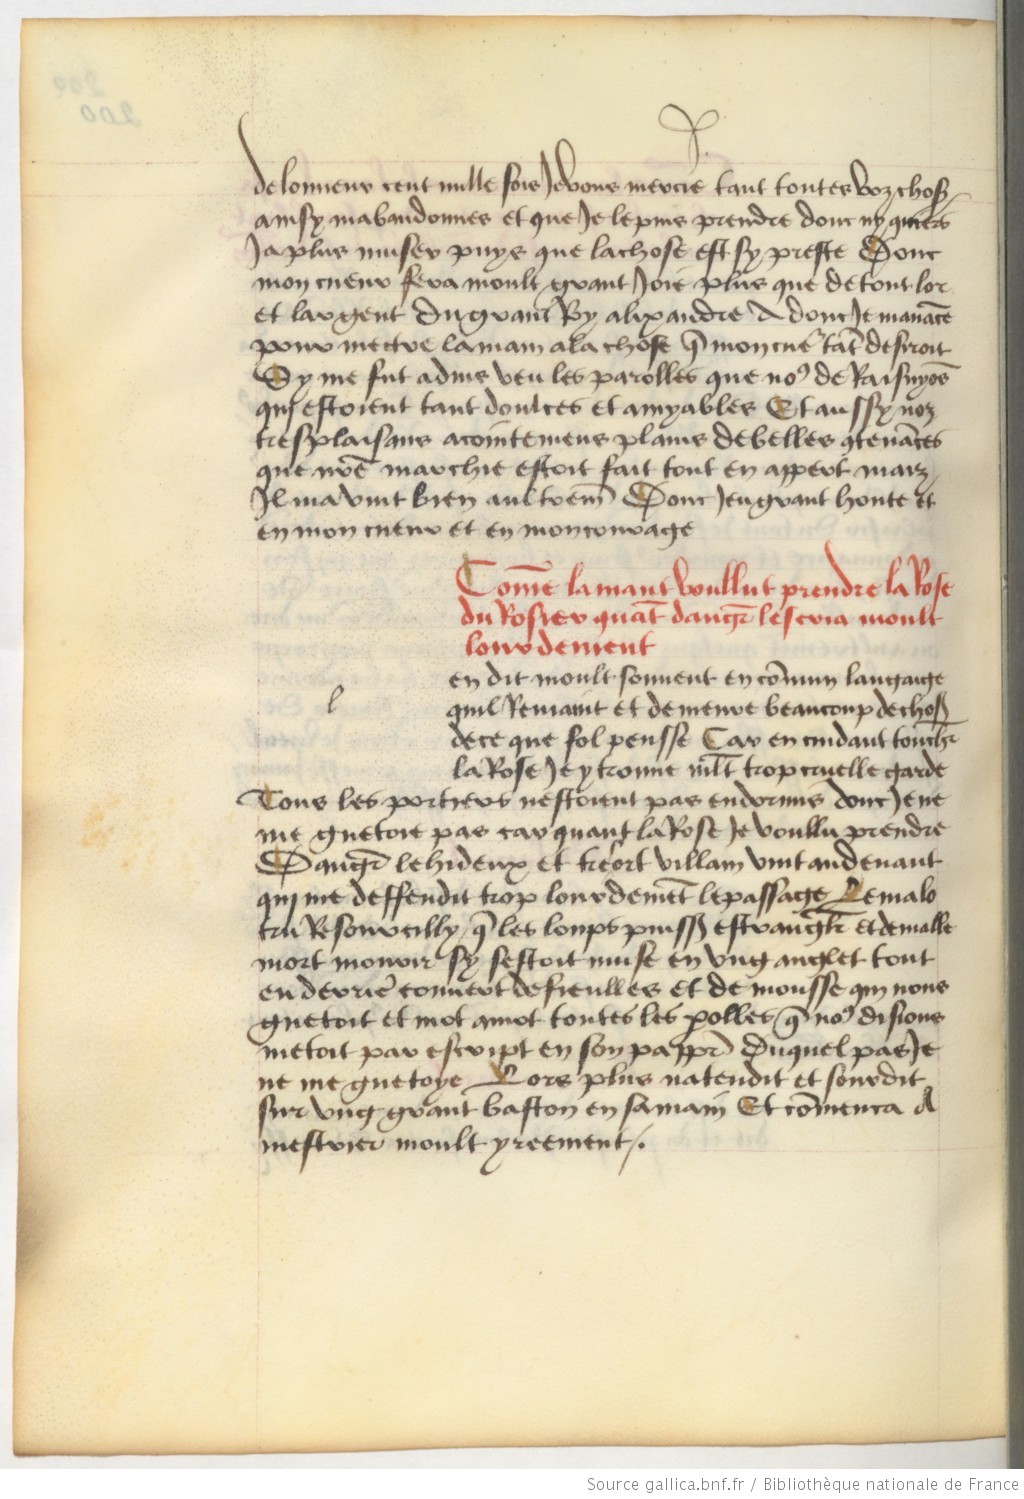 de lonneur cent mille fois Je vous mercie tant toutes voz choses
ainsy mabandonnes et que Je le puis prendre donc ny quiers
Ja plus muser puys que la chose est sy preste Donc
mon cueur fera moult grant Joie plus que de tout lor
et largent du grant Roy alixandre A donc Je mavāce
pour mectre la main a la chose q̄ mon cue͛ tāt desiroit
Sy me fut advis veu les parolles que noꝰ de Raisnyōs
qui estoient tant doulces et amyables Et aussy noz
tresplaisans acointemens plains de belles 9tenāces
que nr̄e marchie estoit fait tout en appert maiz
Il ma vint bien aultrem̄ Donc Jeu grant honte et
en mon cueur et en mon courage
Com̄e lamant voullut prendre la Rose
du Rosier quāt dangr̄ lescria moult
lourdement
l
en dit moult souvent en cōmun langaige
quil Remaint et demeure beaucoup de choses
de ce que fol pensse Car en cuidant touchr̄
la Rose Je y trouve mlt̄ trop cruelle garde
Tous les portiers nestoient pas endormis donc Je ne
me guetoie pas car quant la Rose Je voullu prendre
Dangr̄ le hideux et villain vint au devant
qui me deffendit trop lourdemēt le passage Le malo
tru Resourcilly q̄ les loups puisse estranglr̄ et de malle
mort mourir sy sestoit muse en ung anglet tout
en derrie͛ couvert de fieulles et de mousse qui nous
guetoit et mot a mot toutes les polles q̄ noꝰ disions
metoit par escript en son pappr̄ Duquel pas Je
ne me guetoye Lors plus natendit et sourdit
sur ung grant baston en sa main Et cōmenca A
mescrier moult yreement /.
200
Source gallica.bnf.fr / Bibliothèque nationale de France